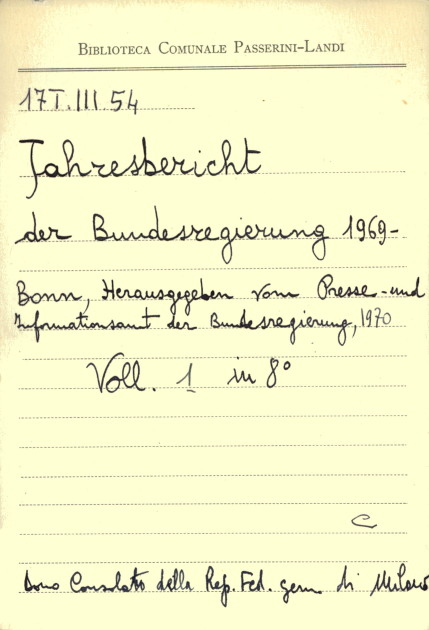 BIBLIOTECA COMUNALE PASSERINI-LANDI
17T.III.54
Jahresbericht
der Bundesregierung 1969-
Bonn, Herausgegeben vom Presse-und
Informationsamt der Bundesregierung, 1970
Voll. 1 in 8°
C
Dono Consolato della Rep. Fed. germ di Milano